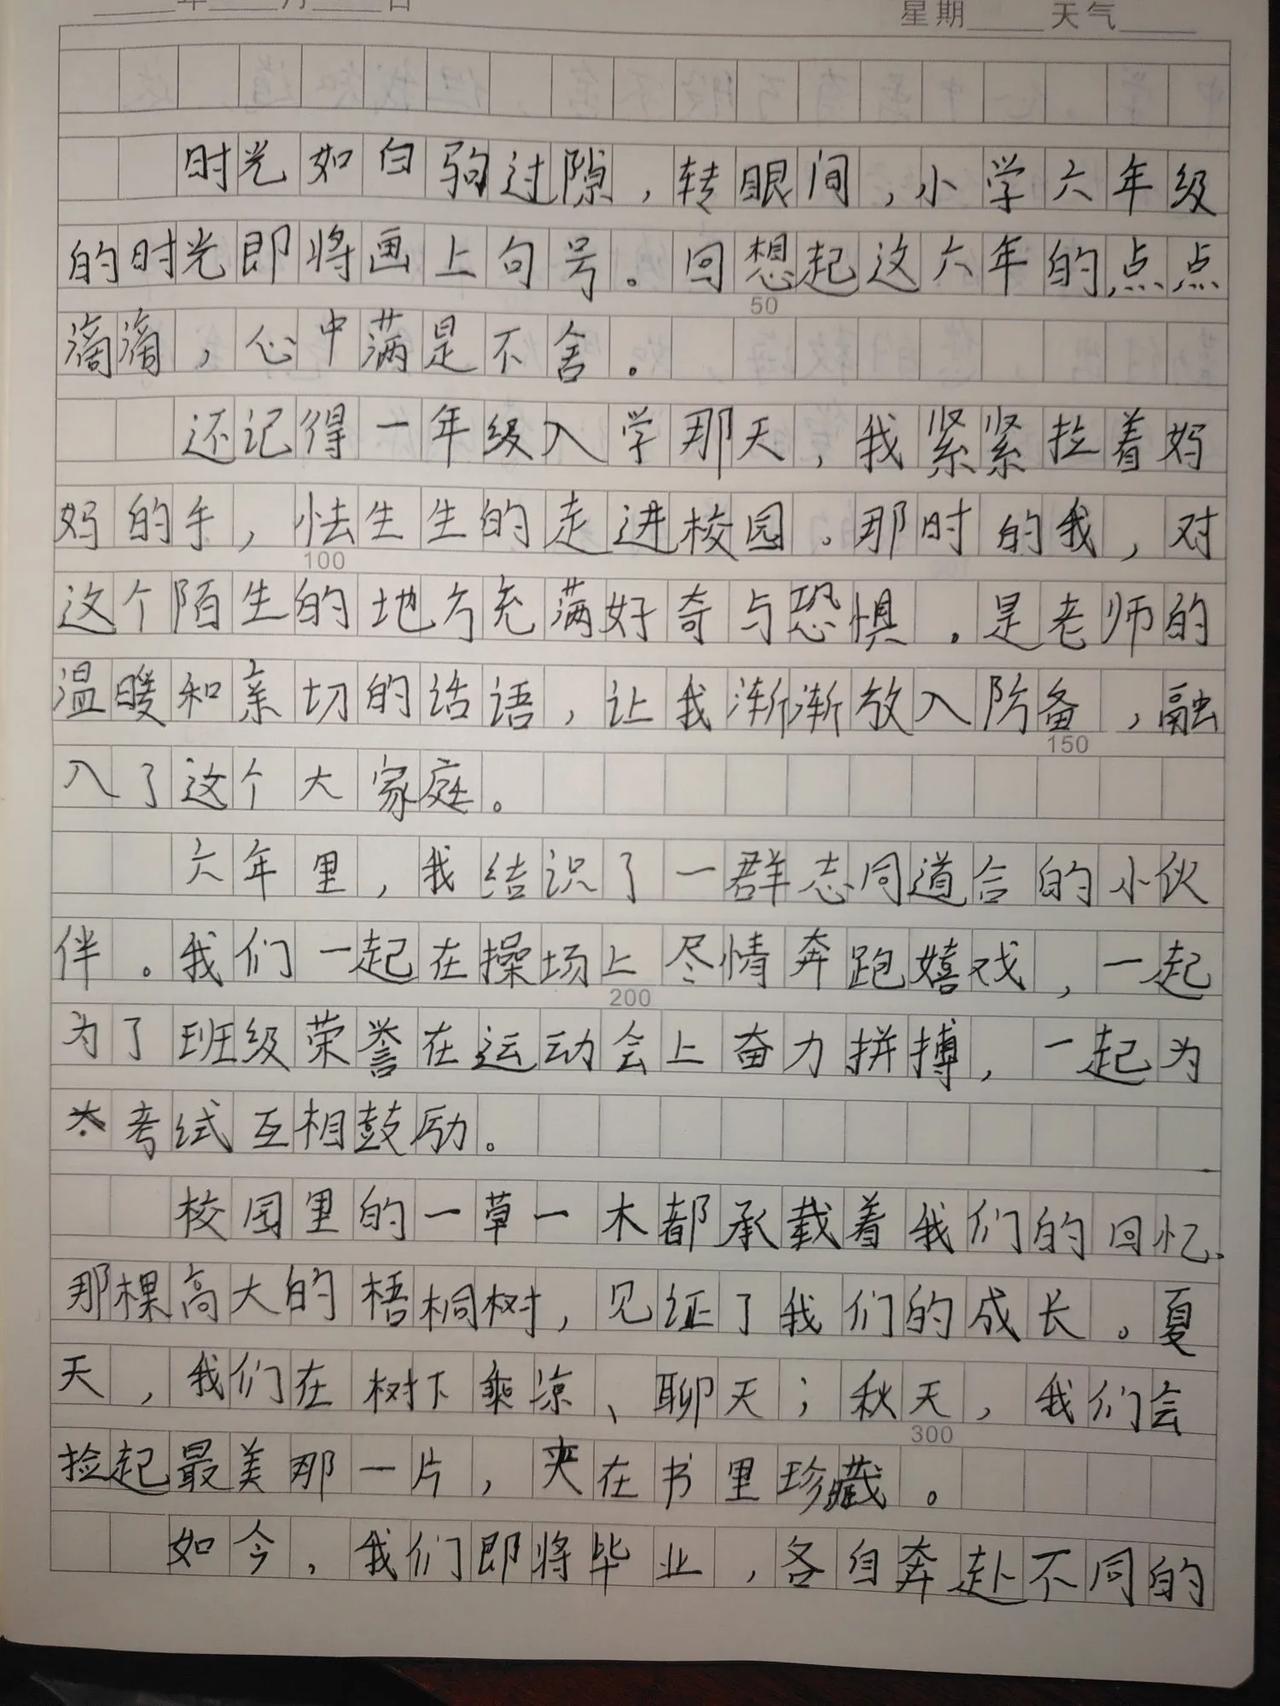 年 月 日 星期 天气
时光如白驹过隙，转眼间，小学六年级
的时光即将画上句号。回想起这六年的点点
50
滴滴，心中满是不舍。
还记得一年级入学那天，我紧紧拉着妈
妈的手，怯生生的走进校园。那时的我，对
100
这个陌生的地方充满好奇与恐惧。是老师的
温暖和亲切的话语，让我渐渐放入防备，融
150
入了这个大家庭。
六年里，我结识了一群志同道合的小伙
伴。我们一起在操场上尽情奔跑嬉戏，一起
200
为了班级荣誉在运动会上奋力拼搏，一起为
考试互相鼓励。
校园里的一草一木都承载着我们的回忆、
那棵高大的梧桐树，见证了我们的成长。夏
天，我们在树下乘凉、聊天；秋天，我们会
300
捡起最美那一片，夹在书里珍藏。
如今，我们即将毕业，各自奔赴不同的